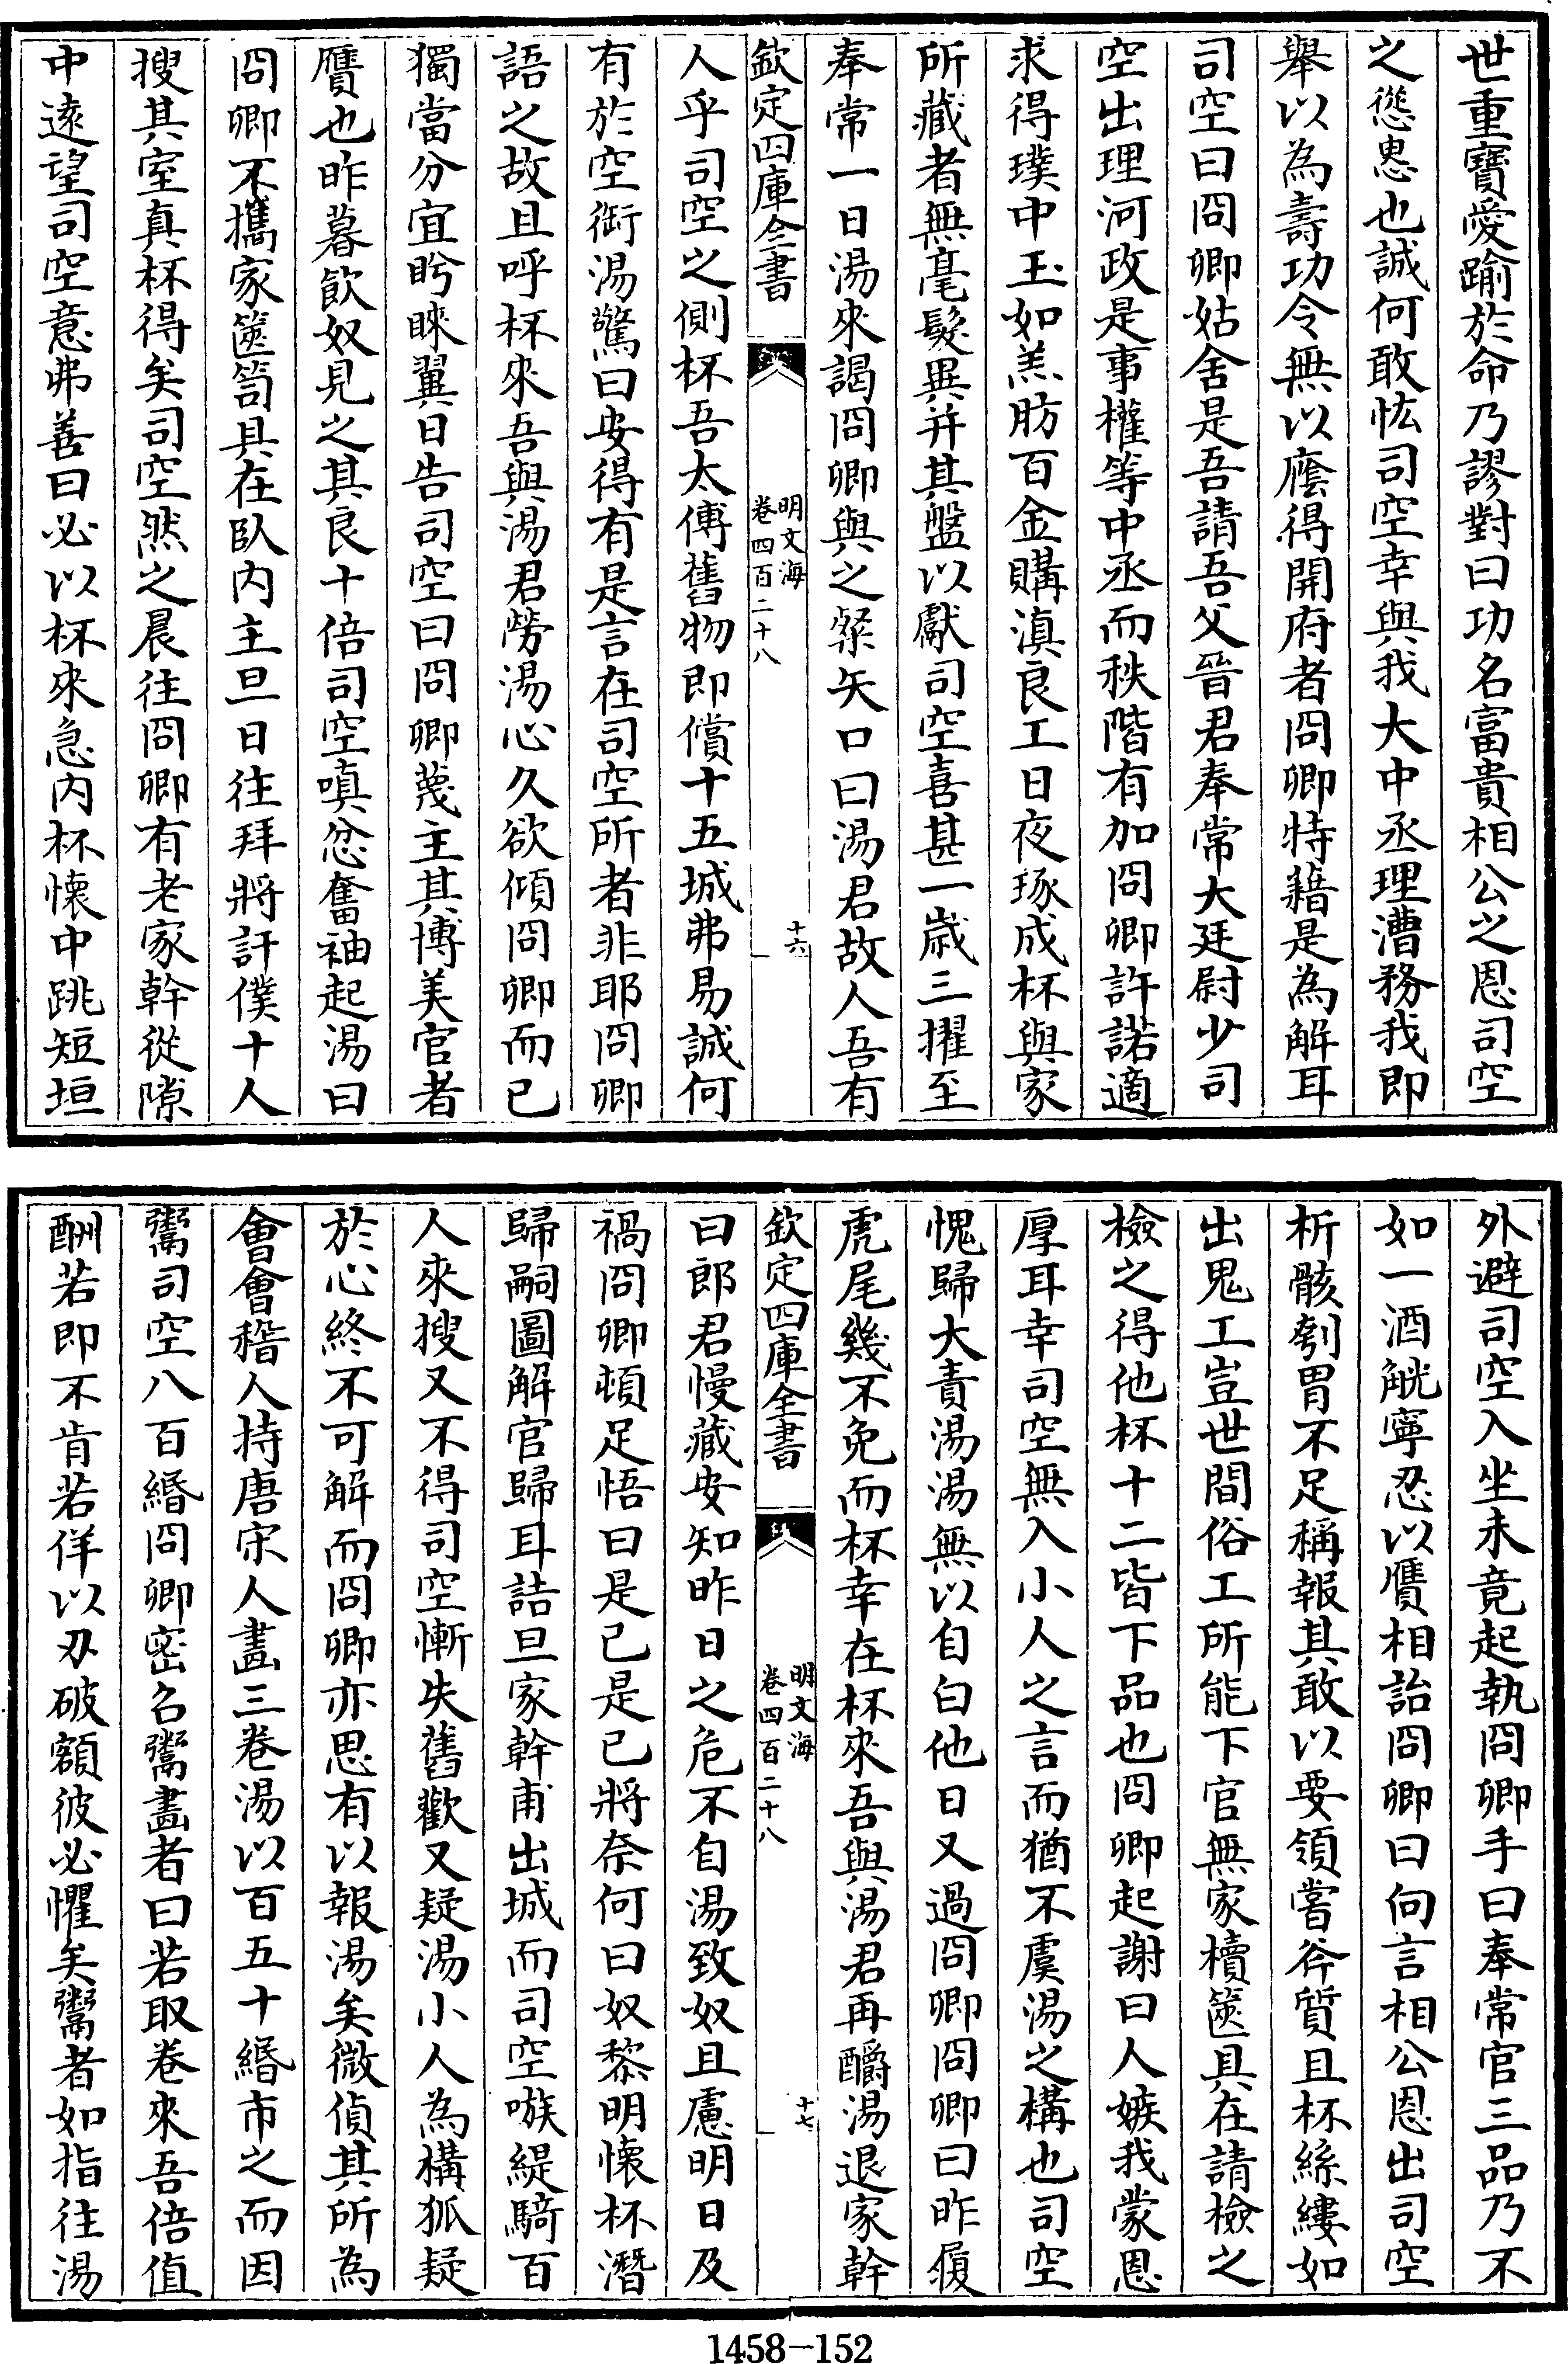 世重寶愛踰於命乃謬對曰功名富貴相公之恩司空
之慫恿也誠何敢恡司空幸與我大中丞理漕務我即
舉以為壽功令無以廕得開府者冏卿特藉是為解耳
司空曰冏卿姑舍是吾請吾父晉君奉常大廷尉少司
空出理河政是事權等中丞而秩階有加冏卿許諾適
求得璞中玉如羔肪百金購滇良工日夜琢成杯與家
所藏者無毫髮異并其盤以獻司空喜甚一歲三擢至
奉常一日湯來謁冏卿與之粲矢口曰湯君故人吾有
欽定四庫全書
明文海
卷四百二十八
十六
人乎司空之側杯吾太傅舊物即償十五城弗易誠何
有於空銜湯驚曰安得有是言在司空所者非耶冏卿
語之故且呼杯來吾與湯君勞湯心久欲傾冏卿而已
獨當分宜盻睞翼日告司空曰冏卿蔑主其博美官者
贋也昨暮飲奴見之其良十倍司空嗔忿奮袖起湯曰
冏卿不攜家篋笥具在臥內主旦日往拜將訐僕十人
搜其室真杯得矣司空然之晨往冏卿有老家幹從隙
中遠望司空意弗善曰必以杯來急內杯懷中跳短垣
外避司空入坐未竟起執冏卿手曰奉常官三品乃不
如一酒觥寧忍以贋相詒冏卿曰向言相公恩出司空
析骸刳胃不足稱報其敢以要領嘗斧質且杯絲縷如
出鬼工豈世間俗工所能下官無家櫝篋具在請檢之
檢之得他杯十二皆下品也冏卿起謝曰人嫉我蒙恩
厚耳幸司空無入小人之言而猶不虞湯之構也司空
愧歸大責湯湯無以自白他日又過冏卿冏卿曰昨履
虎尾幾不免而杯幸在杯來吾與湯君再釂湯退家幹
欽定四庫全書
明文海
卷四百二十八
十七
曰郎君慢藏安知昨日之危不自湯致奴且慮明日及
禍冏卿頓足悟曰是已是已將奈何曰奴黎明懷杯潛
歸嗣圖解官歸耳詰旦家幹甫出城而司空嗾緹騎百
人來搜又不得司空慚失舊歡又疑湯小人為構狐疑
於心終不可解而冏卿亦思有以報湯矣微偵其所為
會會稽人持唐宋人畫三卷湯以百五十緡市之而因
鬻司空八百緡冏卿密召鬻畫者曰若取卷來吾倍值
酬若即不肯若佯以刃破額彼必懼矣鬻者如指往湯
1458-152